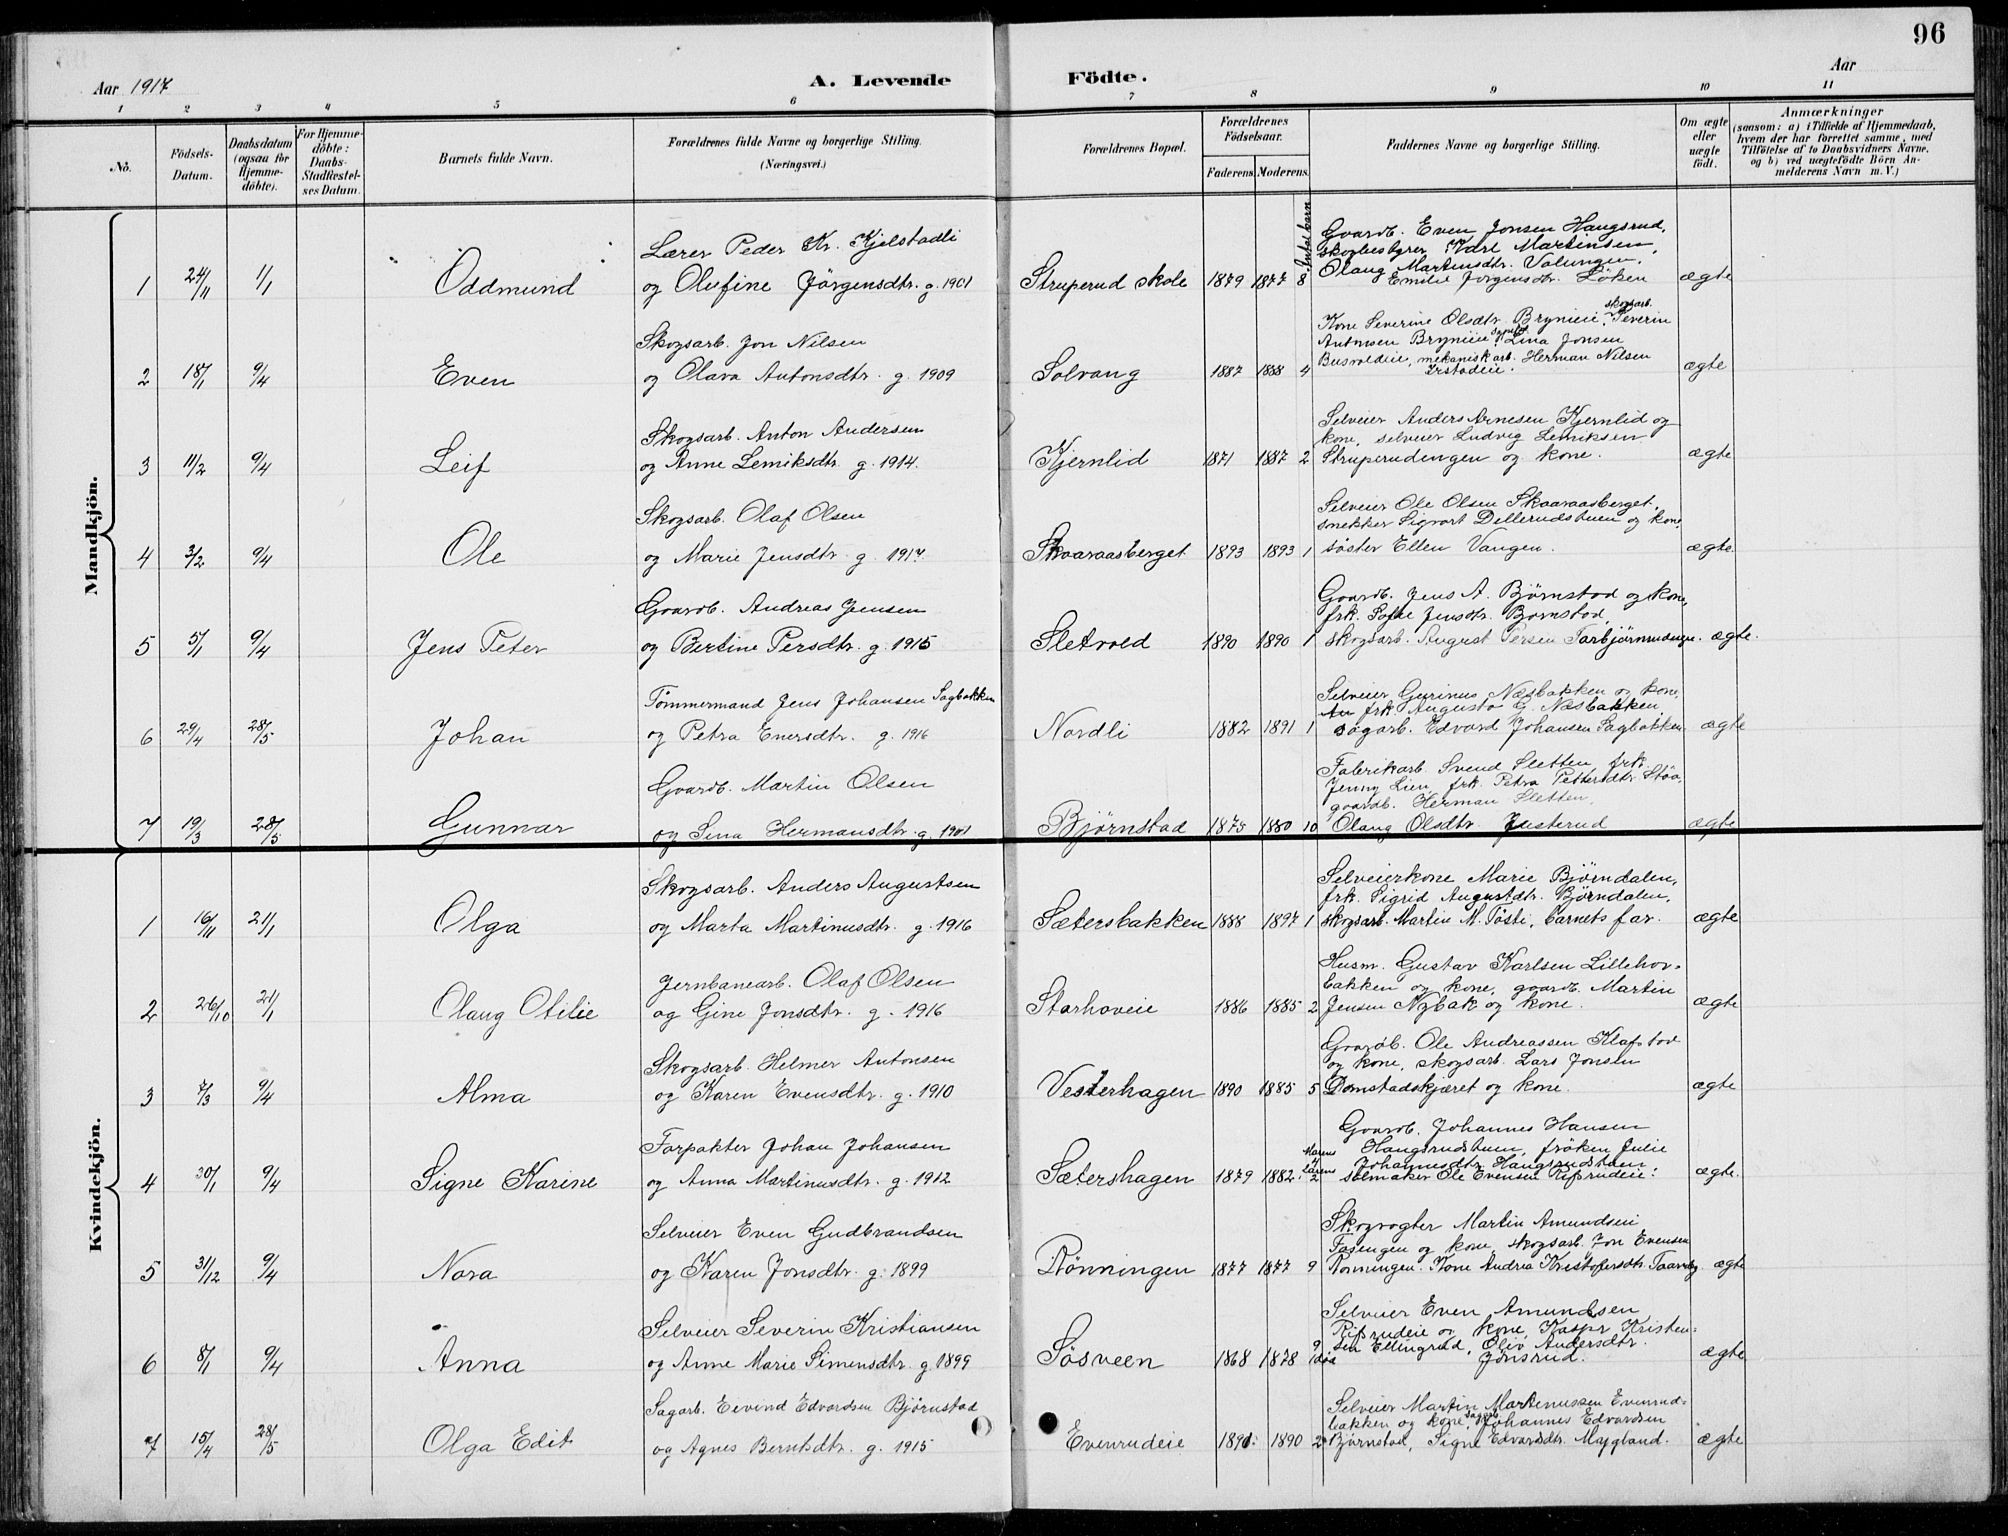 96
Aar 1917
A. Levende
Födte.
Aar
1 2 3 4 5 6 7 8 9 10 11
No.
Födsels-Datum.
Daabsdatum (ogsaa for Hjemme-döbte).
For Hjemme-döbte: Daabs-Stadfæstel-ses Datum.
Barnets fulde Navn.
Forældrenes fulde Navne og borgerlige Stilling. (Næringsvei.)
Forældrenes Bopæl.
Forældrenes Födselsaar.
Faderens. Moderens.
Faddernes Navne og borgerlige Stilling.
Om ægte eller uægte födt.
Anmærkninger
(saasom: a) i Tilfælde af Hjemmedaab,
hvem der har forrettet samme, med
Tilföielse af to Daabsvidners Navne,
og b) ved uægtefödte Börn An-
melderens Navn m. V.)
Antal barn
Mandkjön.
Lærer Peder Kr. Kjelstadli
Gaardb. Even Jonsen Haugsrud,
skogbestyrer Karl Martinsen,
Olaug Martinsdtr. Valungen,
1 24/11 1/1 Oddmund og Olufine Jörgensdtr. g. 1901 Struperud skole 1879 1877 8 Emilie Jörgensdtr. Löken ægte
Skogsarb. Jon Nilsen
Kone Severine Olsdtr. Brynieie, skogsarb. Severin
Antonsen Brynieie, Lina Jonsen
Busvoldeie, mekanisk arb. Herman Nilsen
2 18/1 9/4 Even og Olava Antonsdtr. g. 1909 Solvang 1887 1888 4 ægte
Skogsarb. Anton Andersen
Selveier Anders Arnesen Kjernlid og
kone, selveier Ludvig Lemiksen
3 11/2 9/4 Leif og Anne Lemiksdtr. g. 1914. Kjernlid 1871 1887 2 Struperudengen og kone. ægte
Skogsarb. Olaf Olsen
Selveier Ole Olsen Skaaraasberget,
snekker Sigvart Dellerudstuen og kone,
4 3/2 9/4 Ole og Marie Jensdtr. g. 1917. Skaaraasberget 1893 1893 1 söster Ellen Vangen. ægte
Gaardb. Andreas Jensen
Gaardb. Jens A. Björnstad og kone,
frk. Sofie Jensdtr. Bjornstad,
5 5/1 9/4 Jens Peter og Bertine Persdtr. g. 1915 Sletvold 1890 1890 1 skogsarb. August Persen ægte.
Tömmermand Jens Johansen Sagbakken
Selveier Gurinus Næsbakken og kone,
frk. Augusta G. Næsbakken,
6 29/4 28/5 Johan og Petra Enersdtr. g. 1916 Nordli 1882 1891 1 sagarb. Edvard Johansen Sagbakken ægte
Gaardb. Martin Olsen
Fabrikarb. Svend Sletten, frk.
Jenny Lien, frk. Petra Pettersdtr. Stöa,
gaardb. Herman Sletten,
7 19/3 28/5 Gunnar og Sina Hermansdtr. g. 1901 Björnstad 1875 1880 10 Olaug Olsdtr. Justerud ægte
Kvindekjön.
Skogsarb. Anders Augustsen
Selveierkone Marie Björndalen,
frk. Sigrid Augustdtr. Björndalen,
1 16/11 21/1 Olga og Marta Martinusdtr. g. 1916 Sætersbakken 1888 1897 1 skogsarb. Martin M. Töste, barnets far. ægte
Jernbanearb. Olaf Olsen
Husm. Gustav Karlsen Lillehov-
bakken og kone, gaardb. Martin
2 26/10 21/1 Olaug Otilie og Gine Jonsdtr. g. 1916 Starhoveie 1886 1885 2 Jensen Nybak og kone. ægte
Skogsarb. Helmer Antonsen
Gaardb. Ole Andreassen Klafstad
og kone, skogsarb. Lars Jonsen
3 7/3 9/4 Alma og Karen Evensdtr. g. 1910 Vesterhagen 1890 1885 5 Domstadskjæret og kone. ægte
Forpakter Johan Johansen
Gaardb. Johannes Hansen
Haugsrudstuen, fröken Julie
Johannesdtr. Haugsrudstuen
4 30/1 9/4 Signe Karine og Anna Martinusdtr. g. 1912 Sætershagen 1879 1882. 2 salmaker Ole Evensen Rifsrudeie. ægte.
Selveier Even Gudbrandsen
Skogvogter Martin Amundsen
Fasengen og kone, skogsarb. Jon Evensen
5 31/12 9/4 Nora og Karen Jonsdtr. g. 1899 Rönningen 1877 1877 9 Rönningen. Kone Andrea Kristofersdtr. ægte
Selveier Severin Kristiansen
Selveier Even Amundsen
Rifsrudeie og kone, Kaspr Kristen-
sen Ellingrud, Oliv Andersdtr.
6 8/1 9/4 Anna og Anne Marie Simensdtr. g. 1899 Sösveen 1868 1878 9 1 död Jönsrud. ægte
Sagarb. Eivind Edvardsen Björnstad
Selveier Martin Martinussen Evenrud-
bakken og kone, sagarb. Johannes Edvardsen
7 15/4 28/5 Olga Edit og Agnes Berntsdtr. g. 1915 Evenrudeie 1890 2 Björnstad, Signe Edvardsdtr. Mygland. ægte